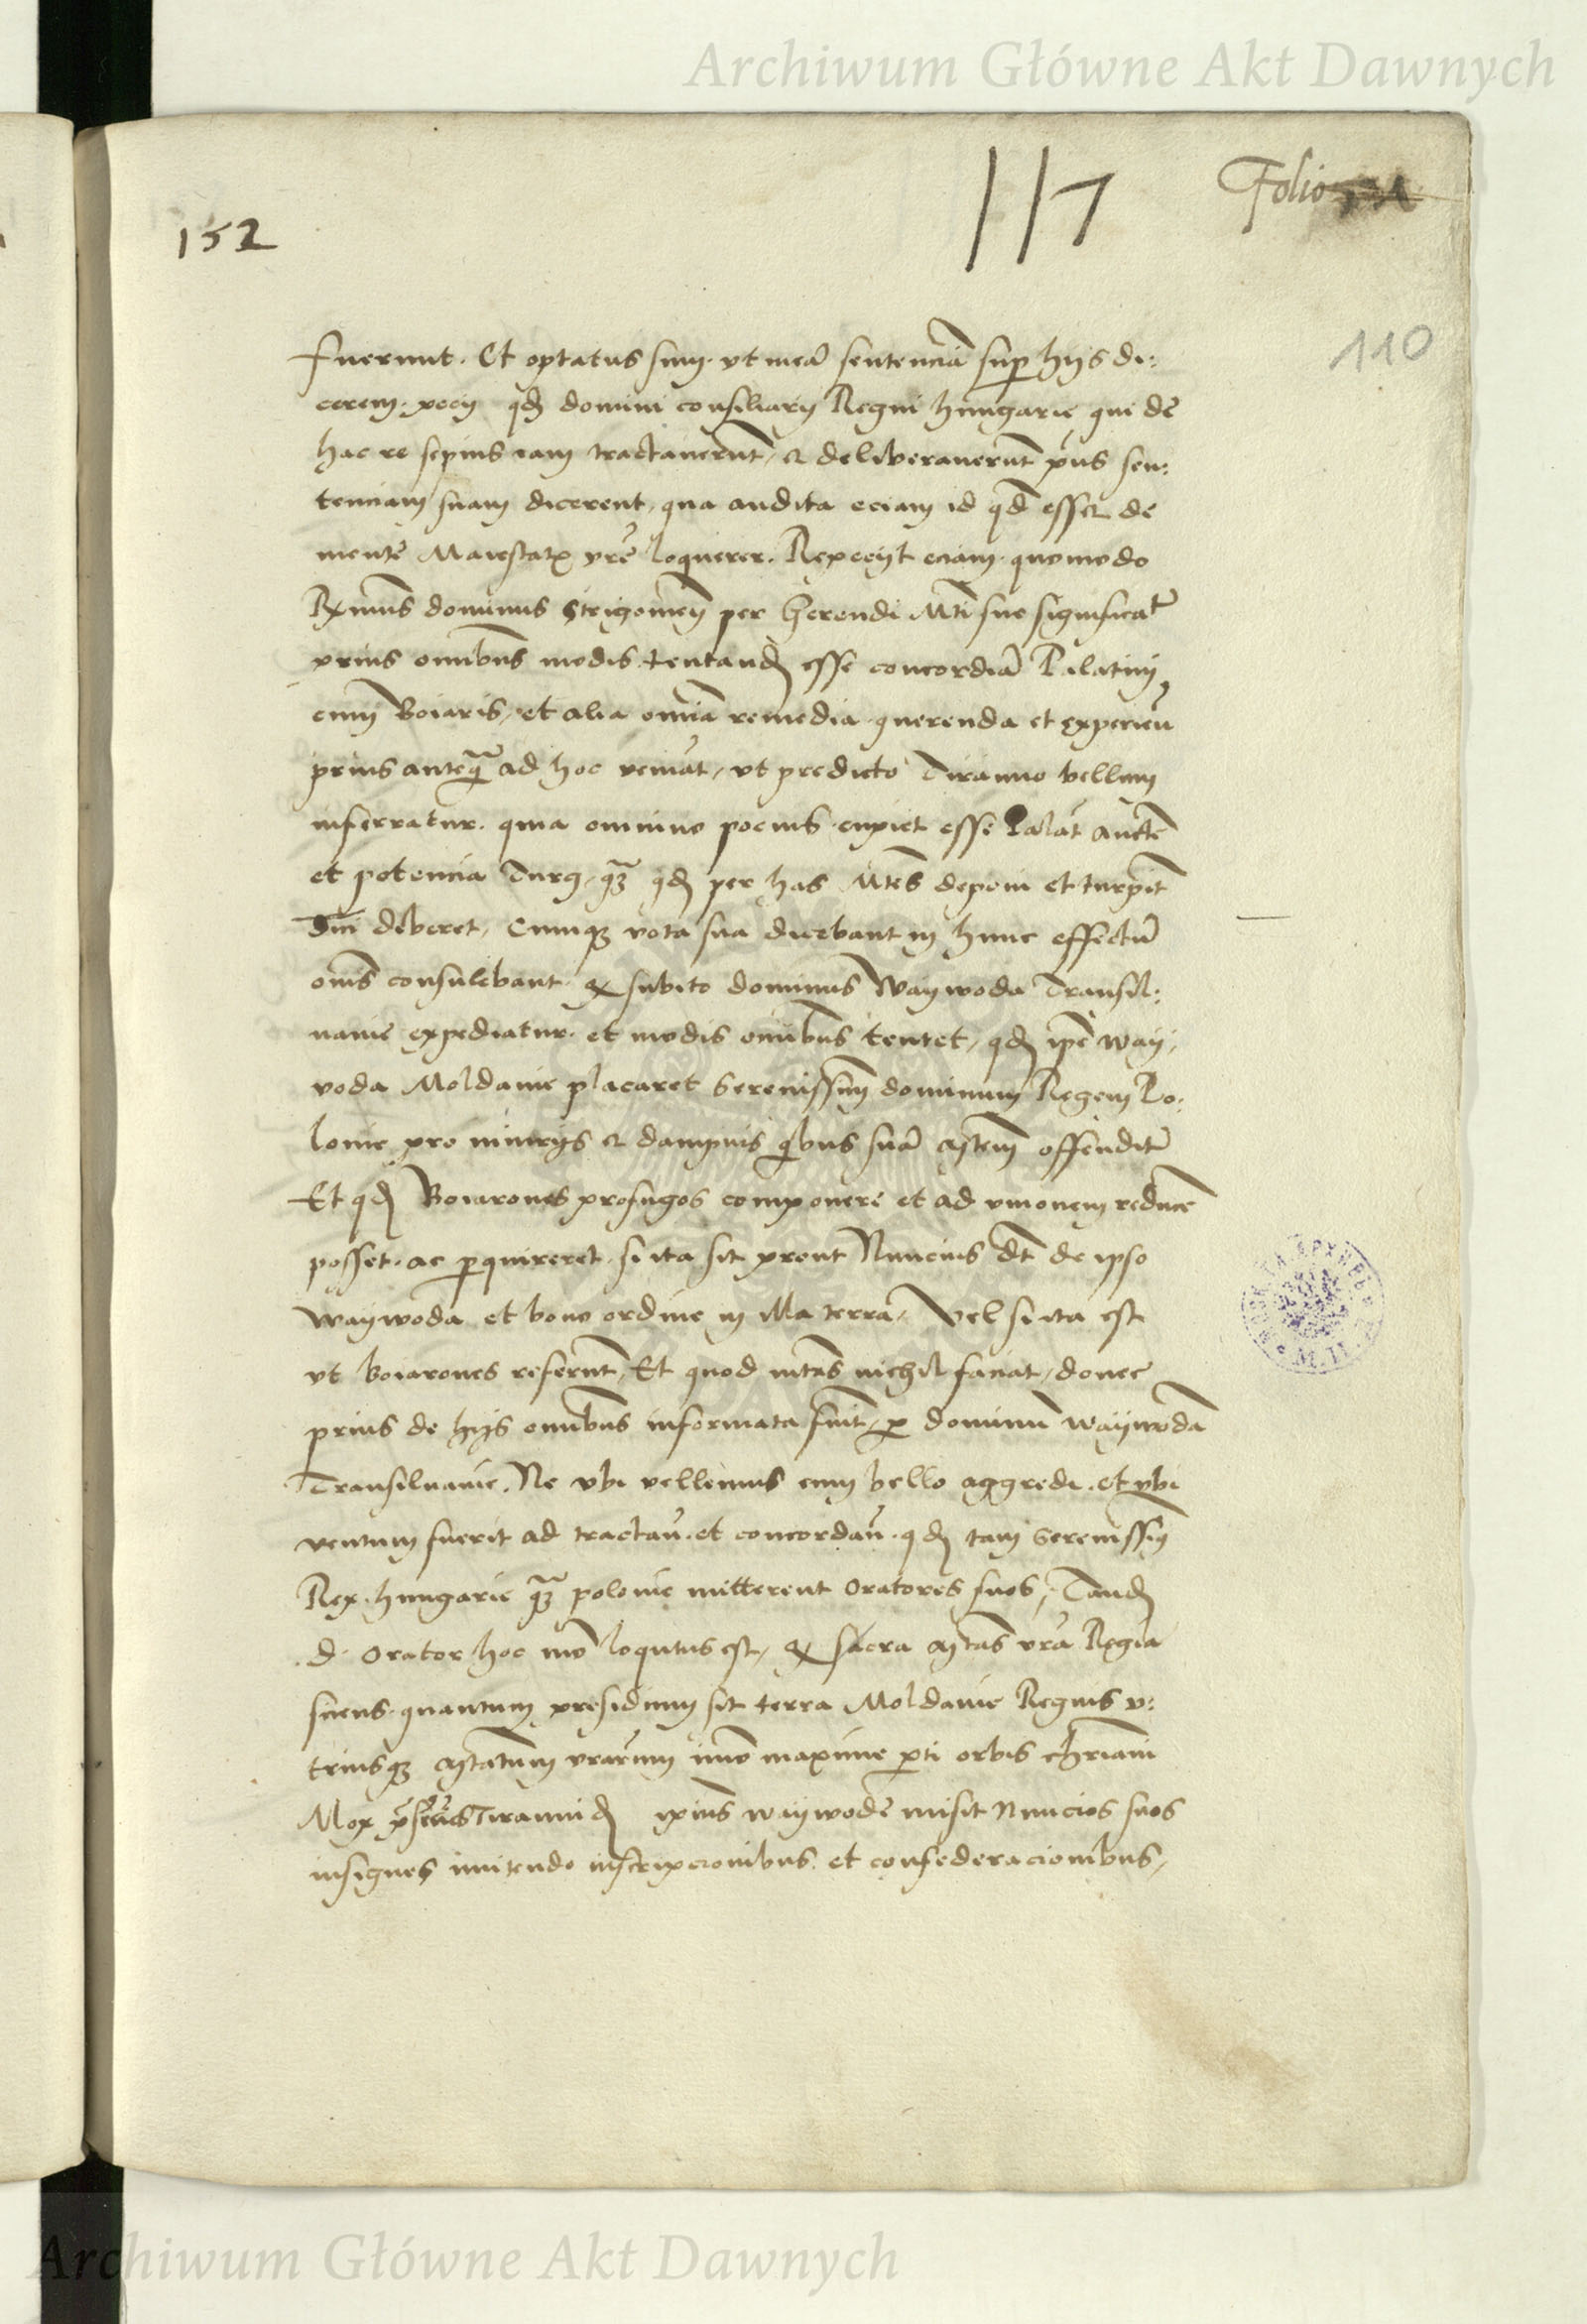 Archiwum Główne Akt Dawnych
117
Folio
152
110
fuerunt. Et optatus sum. vt meā sentenciā sup hijs di:
cerem. pecij qđ domini consiliarij Regni hungarie qui de
hac re sepius iam tractauerūt, & deliberauerūt prius sen:
tenciam suam dicerent, qua audita eciam id qđ esset de
mente Maiestatis vrē loquerer. Repecijt eciam quomodo
Rx̄mus dominus Strigonieñ per Gerendi Mti sue significat
prius omibus modis tentandū esse concordiā Palatini
cum Boiaris, et alia omnia remedia querenda et experien
prius anteq̄ ad hoc veniat, vt predicto Tiranno bellum
inferratur. quia omnino pocius cupiet esse Palat aucte
et potencia Turci, q̄ qđ per has Mtes deponi et turpit
dici deberet, Cumq; vota sua dicebant in hunc effectū
oms consulebant. Q subito dominus Waywoda Transil:
vanie expediatur. et modis omibus tentet, qđ ipe way,
voda Moldauie placaret Serenissimū dominum Regem Po:
lonie pro iniurijs & dampnis quibus suā Mtem offendit
Et qđ Boiarones profugos componere et ad vnionem reduce
posset. ac perquireret. si ita sit prout Nuncius dt de ipso
waywoda et bono ordine in illa terra, Vel si ita est
vt boiarones referūt, Et quod mtas nichil faciat, donec
prius de hijs omibus informata fuit, p dominū waywodā
Transiluanie. Ne vbi vellemus eum bello aggredi. et vbi
ventum fuerit ad tractaū. et concordaū. qđ tam Serenissim
Rex hungarie q̄ polonie mitterent Oratores suos, Tandē
d. Orator hoc mō loqutus est, Q sacra Mtas vrā Regia
sciens quantum presidium sit terra Moldauie Regnis v:
triusq; Mtatum vrarum imo maxime pti orbis chriani
Mox Tirannidē ipius waywode misit Nuncios suos
insignes initendo inscripcionibus et confederacionibus,
Archiwum Główne Akt Dawnych